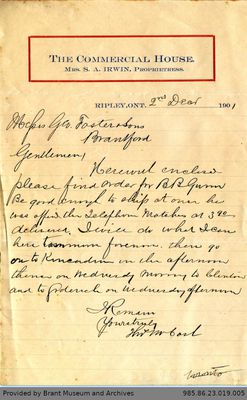 THE COMMERCIAL HOUSE.
MRS. S. A. IRWIN, PROPRIETRESS.
RIPLEY, ONT. 2nd Dec 1901
Messrs Geo Foster & Sons
Brantford
Gentlemen,
Herewith enclose
please find order for
Be good enough to ship at once he
was offered the Telephone Matches at 3
delivered, I will do what I can
here tomorrow forenoon. then go
on to Kincardine in the afternoon
thence on Wednesday Morning to Clinton
and to Goderich on Wednesday afternoon
I Remain
Yours truly
Provided by Brant Museum and Archives
985.86.23.019.005